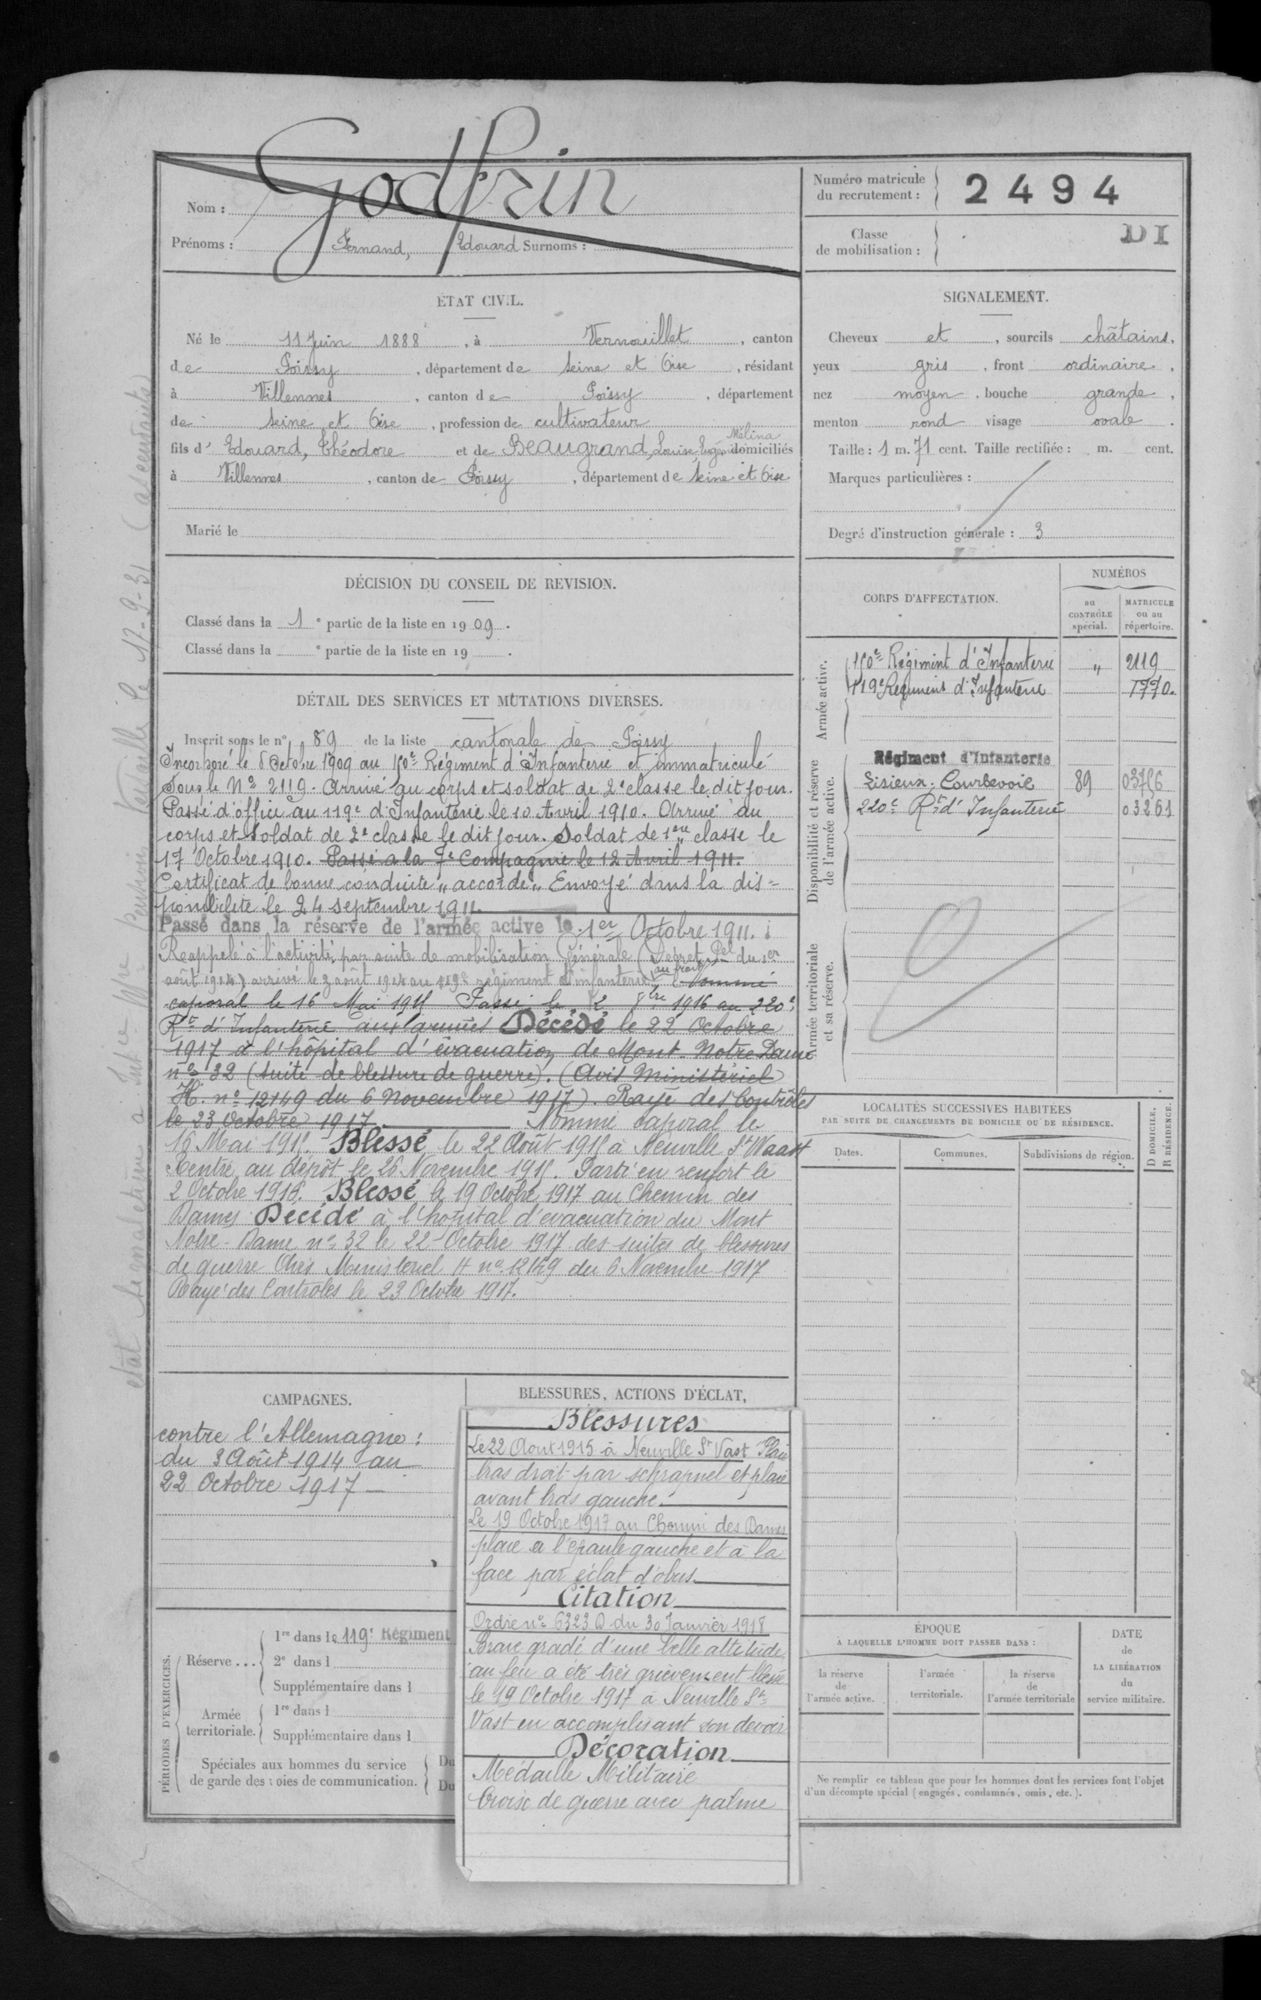 Nom : Godfrin
Prénoms : Fernand, Edouard Surnoms :
Numéro matricule
du recrutement : 2494
Classe
de mobilisation :
DI
ÉTAT CIVIL.
Né le 11 Juin 1888, à Vernouillet, canton
de Poissy, département de Seine et Oise, résidant
à Villennes, canton de Poissy, département
de Seine et Oise, profession de cultivateur
fils d' Edouard, Théodore et de Beaugrand, Louise, Mélina domiciliés
à Villennes, canton de Poissy, département de Seine et Oise
Marié le
SIGNALEMENT.
Cheveux et, sourcils châtains,
yeux gris, front ordinaire,
nez moyen, bouche grande,
menton rond visage ovale.
Taille : 1 m. 71 cent. Taille rectifiée : m. cent.
Marques particulières :
Degré d'instruction générale : 3
DÉCISION DU CONSEIL DE REVISION.
Classé dans la 1e partie de la liste en 1909.
Classé dans la e partie de la liste en 19 .
DÉTAIL DES SERVICES ET MUTATIONS DIVERSES.
Inscrit sous le n° 89 de la liste cantonale de Poissy
Incorporé le 8 Octobre 1909 au 150e Régiment d'Infanterie et immatriculé
sous le No 2119. Arrivé au corps et soldat de 2e classe le dit jour.
Passé d'office au 119e d'Infanterie le 10 Avril 1910. Arrivé au
corps et soldat de 2e classe le dit jour. Soldat de 1ere classe le
17 Octobre 1910. Passé à la 7e Compagnie le 12 Avril 1911.
Certificat de bonne conduite "accordé" Envoyé dans la dis=
ponibilité le 24 septembre 1911.
Passé dans la réserve de l'armée active le 1er Octobre 1911.
Rappelé à l'activité par suite de mobilisation Générale (Décret Pel du 1er
août 1914) arrivé le 3 août 1914 au 119e régiment d'infanterie Nommé
caporal le 16 Mai 1915 Passé le 2 8bre 1916 au 220e
Rt d'Infanterie aux armées Décédé le 22 Octobre
1917 à l'hôpital d'évacuation de Mont-Notre Dame
no 32 (suite de blessure de guerre). (Avis Ministériel
H. no 12149 du 6 Novembre 1917). Rayé des Contrôles
le 23 Octobre 1917 Nommé caporal le
16 Mai 1915. Blessé le 22 Août 1915 à Neuville St Waast
Rentré au dépôt le 26 Novembre 1915. Parti en renfort le
2 Octobre 1916. Blessé le 19 Octobre 1917 au Chemin des
Dames Décédé à l'hopital d'évacuation du Mont
Notre-Dame no 32 le 22 Octobre 1917 des suites de blessures
de guerre Avis Ministeriel H no 12149 du 6 Novembre 1917
Rayé des Contrôles le 23 Octobre 1917.
CORPS D'AFFECTATION.
NUMÉROS
au CONTRÔLE spécial.
MATRICULE ou au répertoire.
Armée active.
150e Régiment d'Infanterie " 2119
119e Régiment d'Infanterie 1770.
Disponibilité et réserve de l'armée active.
Régiment d'Infanterie
Lisieux. Courbevoie 89 03756
220e Rt d'Infanterie 03261
Armée territoriale et sa réserve.
LOCALITÉS SUCCESSIVES HABITÉES
PAR SUITE DE CHANGEMENTS DE DOMICILE OU DE RÉSIDENCE.
D DOMICILE.
R RÉSIDENCE.
Dates. Communes. Subdivisions de région.
CAMPAGNES.
contre l'Allemagne :
du 3 Août 1914 au
22 Octobre 1917
BLESSURES, ACTIONS D'ÉCLAT,
Blessures
Le 22 Aout 1915 à Neuville St Vast Plaie
bras droit par schrapnel et plaie
avant bras gauche.
Le 19 Octobre 1917 au Chemin des Dames
plaie à l'épaule gauche et à la
face par éclat d'obus
Citation
Ordre no 6323 D du 30 Janvier 1918
Brave gradé d'une belle attitude
au feu a été très grièvement blessé
le 19 Octobre 1917 à Neuville St
Vast en accomplissant son devoir
Décoration
Médaille Militaire
Croix de guerre avec palme
PÉRIODES D'EXERCICES.
Réserve...
1re dans le 119e Régiment
2e dans l
Supplémentaire dans l
Armée territoriale.
1re dans l
Supplémentaire dans l
Spéciales aux hommes du service
de garde des voies de communication.
Du
Du
ÉPOQUE
À LAQUELLE L'HOMME DOIT PASSER DANS :
la réserve de l'armée active.
l'armée territoriale.
la réserve de l'armée territoriale
DATE
de
LA LIBÉRATION
du
service militaire.
Ne remplir ce tableau que pour les hommes dont les services font l'objet
d'un décompte spécial (engagés, condamnés, omis, etc.).